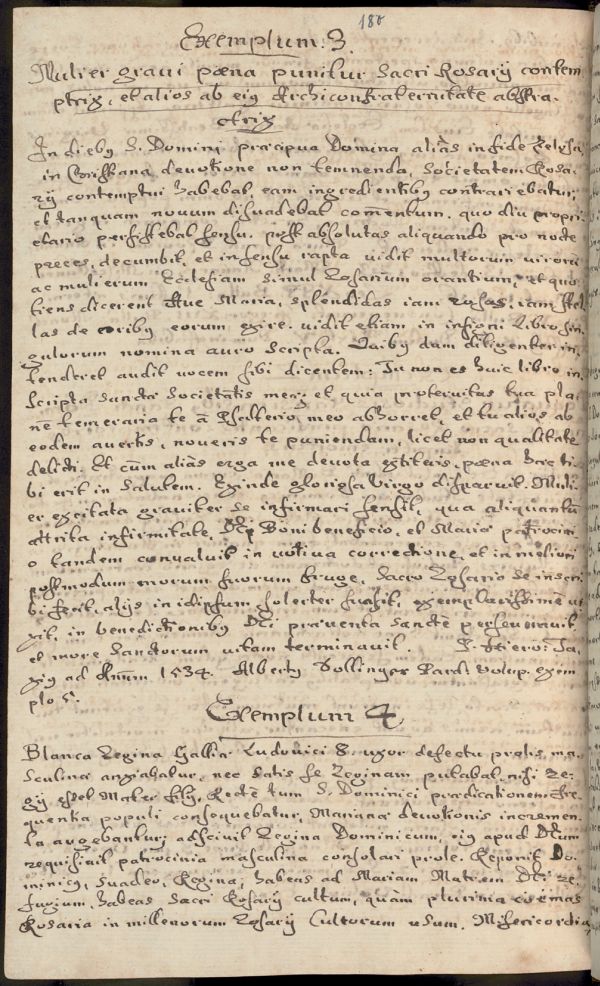 180
Exemplum. 3.
Mulier gravi pœna punitur Sacri Rosarÿ contem
ptrix, et alios ab eiꝯ Archiconfraternitate abstra-
ctrix
In diebꝯ S. Domini præcipua Domina aliàs in fide
in Christiana devotione non temnenda, Societatem Rosa,
rÿ contemptui habebat, eam ingredientibꝯ contrariebatur,
et tanquam novum disuadebat com̄entum. quo diu propri
etario perstitebat sensu. post absolutas aliquando pro nocte
preces, decumbit, et in sensu rapta vidit multorum virorū
ac mulierum Ecclesiam simul Rosarium orantium, et quo
tiens dicerent Ave Maria, splendidas iam rosas, iam stel
las de oribꝯ eorum exire. vidit etiam in insigni libro sin
gulorum nomina auro scripta. Quibꝯ dum diligenter in,
tenderet audit vocem sibi dicentem: Tu non es huic libro in,
scripta sancta Societatis meæ; et quia protervitas tua pla
nè temeraria te à Psalterio meo abhorret, et tu alios ab
eodem avertis, noveris te puniendam, licet non qualitate
delicti. Et cùm aliàs erga me devota extiteris, pœna hæc ti,
bi erit in salutem. Exinde gloriosa Virgo disparuit. Muli,
er excitata graviter se infirmari sensit, qua aliquantū
attrita infirmitate, Dei Boni beneficio, et Mariæ patrocini
o tandem convaluit in votiva correctione, et in meliori
postmodum morum suorum fruge, Sacro Rosario se inscri
bi fecit, alijs in idipsum solerter suasit, exemplarissimè vi
xit, in benedictionibꝯ Dei præventa sanctè perseveravit
et more Sanctorum vitam terminavit. P. Hiero: Ta,
xiꝯ ad Annum 1534. Albertꝯ Dollinger Pard: volup. exem
plo 5.
Exemplum 4.
Blanca Regina Galliæ Ludovici 8. uxor defectu prolis ma,
sculinæ angiabatur, nec satis se Reginam putabat, nisi Re,
gÿ esset Mater filÿ. Rectè tum S. Dominici prædicationem fre
quentia populi consequebatur, Marianæ devotionis incremen
ta augebantur; adscivit Regina Dominicum, eiꝯ apud Deum
requisivit patrocinia masculina consolari prole. Reponit Do,
minicꝯ, suadeo, Regina, habeas ad Mariam Matrem Dei re,
fugium, habeas Sacri Rosarÿ cultum, quàm plurima coëmas
Rosaria in millenorum Rosarÿ Cultorum usum. Misericordia